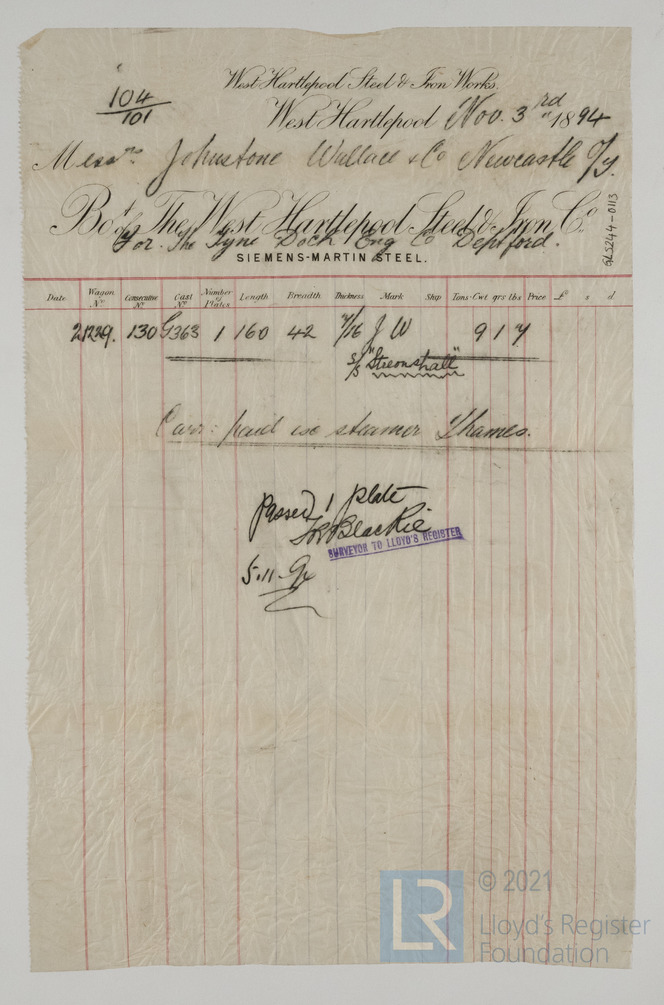 West Hartlepool Steel & Iron Works.
104
101
West Hartlepool Nov. 3rd 1894
Messrs. Johnstone Wallace & Co Newcastle o/y.
Bot of The West Hartlepool Steel & Iron Co.
For. The Tyne Dock Eng Co Deptford.
SIEMENS-MARTIN STEEL.
GLS244-0113
Date Wagon No. Consecutive No. Cast No. Number of Plates Length Breadth Thickness Mark Ship Tons Cwt qrs lbs Price £ s d
21239. 130 G363 1 160 42 7/16 J W 9 1 7
S/S "Streonshall"
Carr: paid exe steamer Thames.
Passed 1 plate
Blackie
SURVEYOR TO LLOYD'S REGISTER
5.11.94
LR
© 2021
Lloyd's Register
Foundation